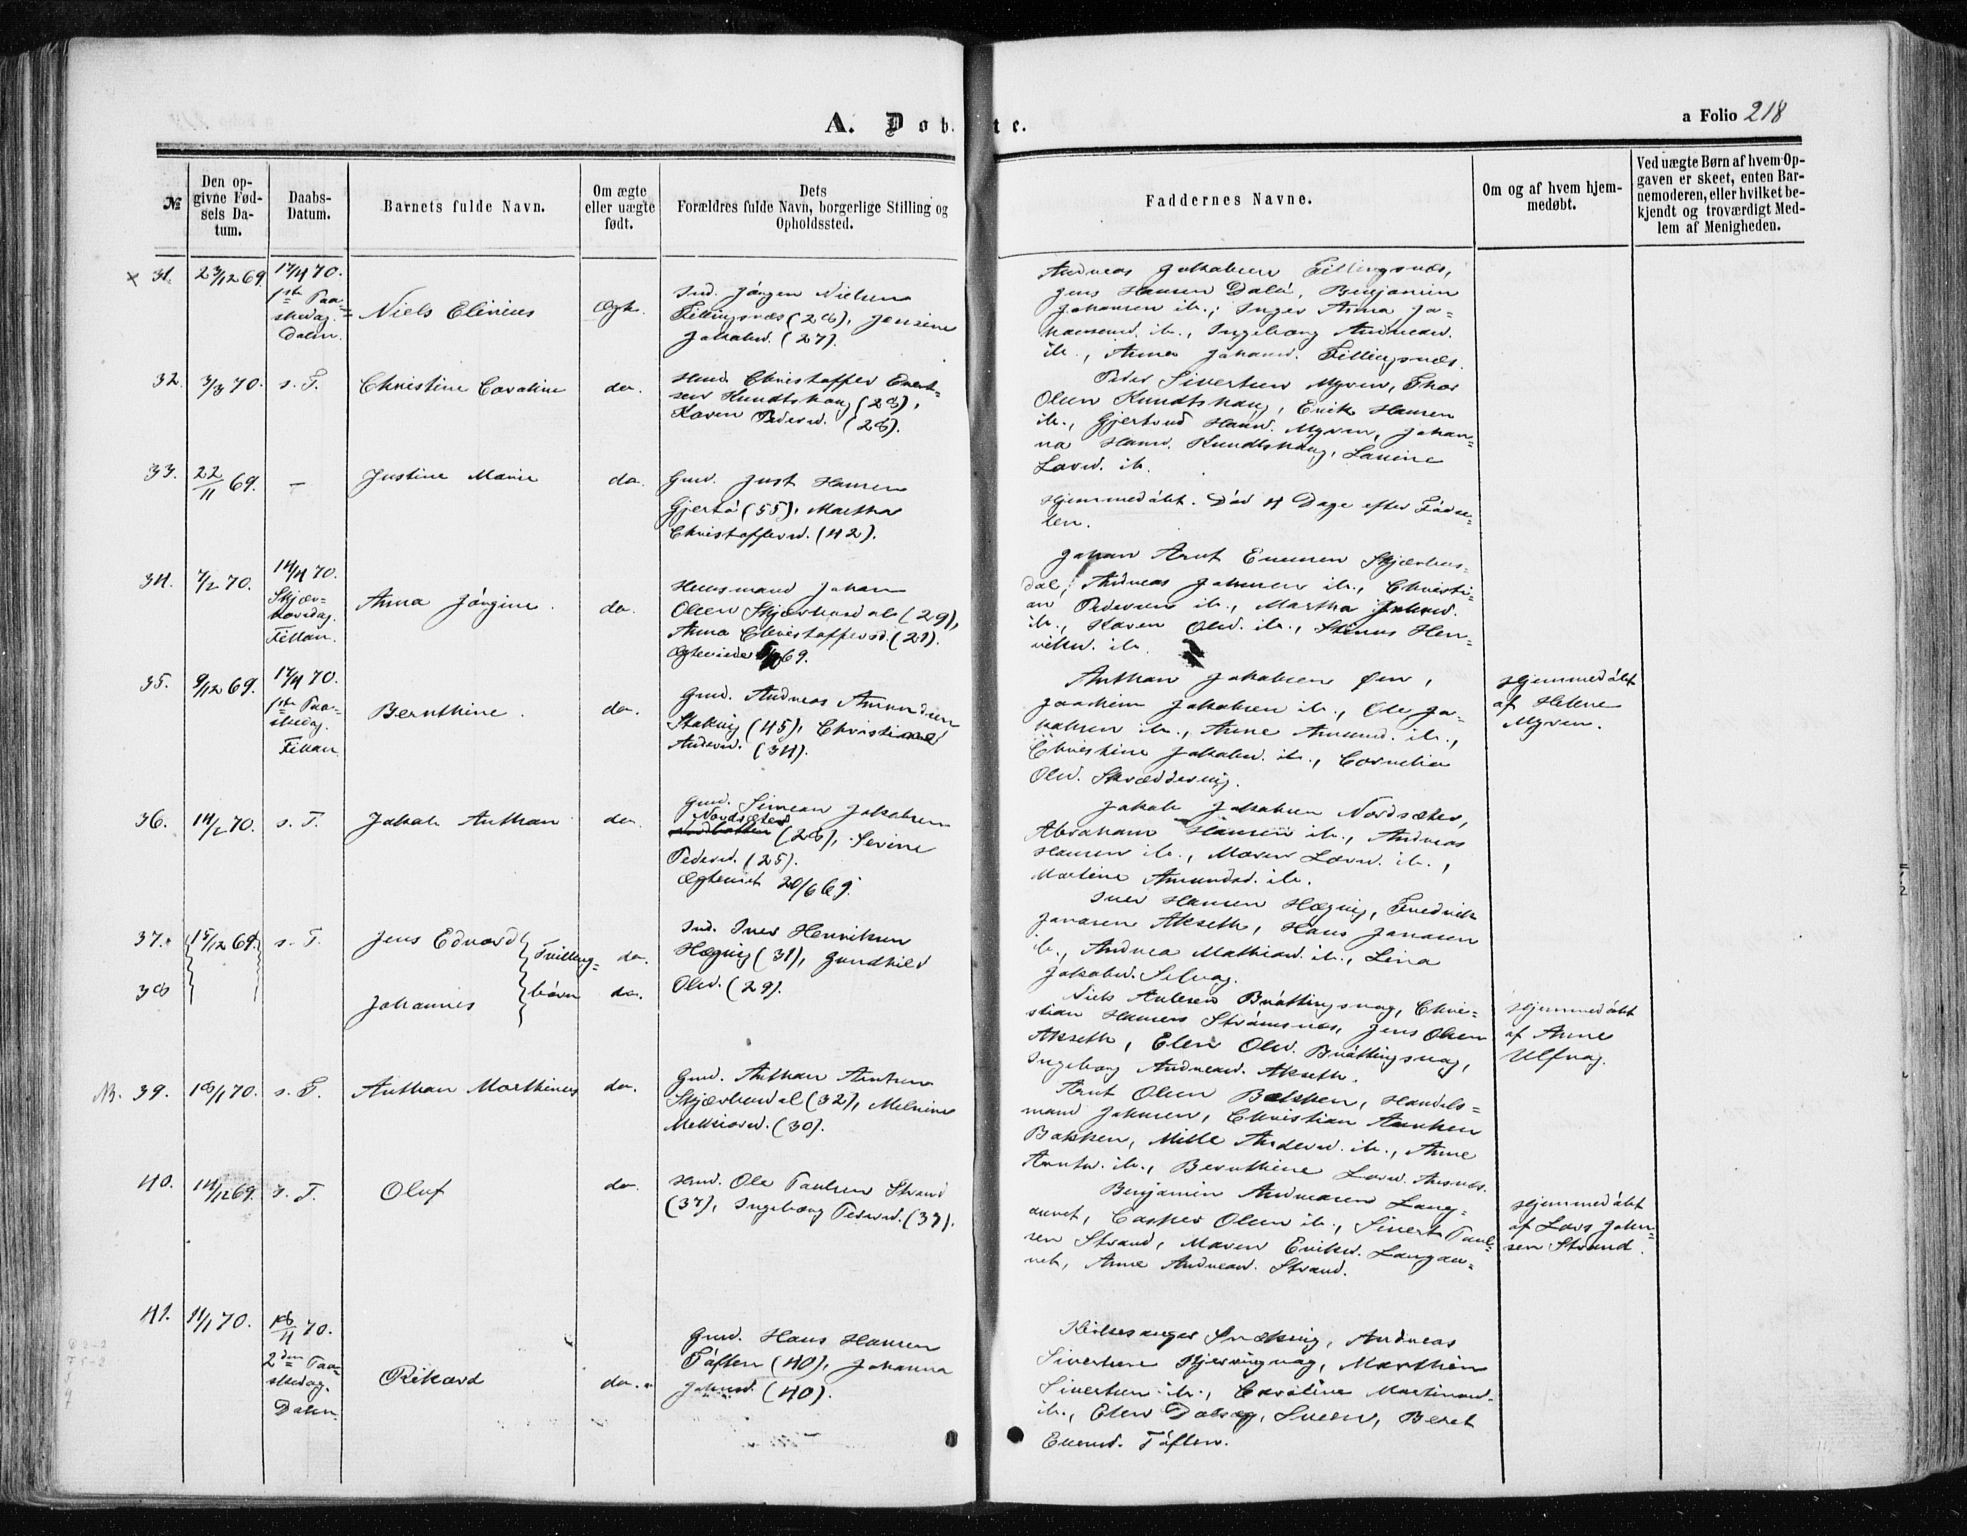 A. Døbte.
a Folio 218
№
Den opgivne Fødsels Datum.
Daabs-Datum.
Barnets fulde Navn.
Om ægte eller uægte født.
Dets Forældres fulde Navn, borgerlige Stilling og Opholdssted.
Faddernes Navne.
Om og af hvem hjemmedøbt.
Ved uægte Børn af hvem Opgaven er skeet, enten Barnemoderen, eller hvilket bekjendt og troværdigt Medlem af Menigheden.
31.
23/12 69
17/4 70.
1ste Paaskedag. Dalen.
Niels Elinius
Ægte.
Ind. Jørgen Nielsen
Fillingsnæs (28), Jensine
Jakobsd. (27).
Andreas Jakobsen Fillingsnæs,
Jens Hansen Dalø, Benjamin
Johansen ib., Inger Anna Jo-
hansend. ib., Ingeborg Andreasd.
ib., Anna Johansd. Fillingsnæs.
32.
3/3 70.
s. T.
Christine Caroline
do.
Huusm. Christoffer Evert-
sen Knudtshaug (23),
Karen Pedersd. (28).
Peder Sivertsen Myren, Thor
Olsen Knudtshaug, Erik Hansen
ib., Gjertrud Hansd. Myren, Johan-
na Hansd. Knudtshaug, Lavine
Larsd. ib.
33.
22/11 69.
—
Justine Marie
do.
Gmd. Just Hansen
Gjertø (55), Martha
Christoffersd. (42).
Hjemmedøbt. Død 4 Dage efter Fødse-
len.
34.
7/2 70.
14/4 70.
Skjær-
torsdag.
Fillan.
Anna Jørgine.
do.
Huusmand Johan
Olsen Skjærhusdal (29),
Anna Christoffersd. (29).
Ægteviede 69.
Johan Arnt Ellensen Skjærhus-
dal, Andreas Johnsen ib., Christi-
an Pedersen ib., Martha Johnsd.
ib., Karen Olsd. ib., Stinus Hen-
riksd. ib.
35.
9/12 69.
17/4 70.
1ste Paa-
skedag.
Fillan.
Bernthine.
do.
Gmd. Andreas Amundsen
Stakvig (45), Christine
Andersd. (34).
Anthon Jakobsen Øen,
Joachim Jakobsen ib., Ole Ja-
kobsen ib., Anne Amundsd. ib.,
Christine Jakobsd. ib., Cornelia
Olsd. Skræddervig.
Hjemmedøbt
af Helene
Myren.
36.
14/2 70.
s. T.
Jakob Anthon
do.
Gmd. Simeon Jakobsen
Nordsæter
(28), Serine
Pedersd. (25).
Ægteviet 20/6 69.
Jakob Jakobsen Nordsæter,
Abraham Hansen ib., Andreas
Hansen ib., Maren Larsd. ib.,
Martine Amundsd. ib.
37.
15/12 69.
s. T.
Jens Edvard
Tvilling-
børn
do.
Ind. Iver Henriksen
Hægvig (31), Gundhild
Olsd. (29).
Iver Hansen Hægvig, Fredrik
Jonasen Akseth, Hans Jonasen
ib., Andrea Mathiasd. ib., Lina
Jakobsd. Selvag.
38
Johannes
do.
Niels Antonsen Bråttingsvag, Chri-
stian Hansen Strømsnes, Jens Olsen
Akseth, Elen Olsd. Bråttingsvag,
Ingeborg Andreasd. Akseth.
Hjemmedøbt
af Anne
Ulfvag.
NB. 39.
18/1 70.
s. T.
Anthon Marthinus
do.
Gmd. Anthon Arntsen
Skjærhusdal (32), Melvine
Melkiorsd. (30).
Arnt Olsen Bakken, Handels-
mand Johnsen, Christian Arntsen
Bakken, Mille Andersd. ib., Anne
Arntsd. ib., Bernthine Larsd. Aksnæs.
40.
14/12 69.
s. T.
Oluf
do.
Huusm. Ole Paulsen Strand
(37), Ingeborg Pedersd. (37).
Benjamin Andreasen Lang-
aunet, Casper Olsen ib., Sivert Paul-
sen Strand, Maren Eriksd. Langau-
net, Anne Andreasd. Strand.
Hjemmedøbt
af Lars John-
sen Strand.
41.
11/1 70.
18/4 70.
2den Paa-
skedag.
Dalen.
Rikard
do.
Gmd. Hans Hansen
Tøften (40), Johanna
Johnsd. (40).
Kirkesanger Snekvig, Andreas
Sivertsen Bjerringvag, Marthin
Sivertsen ib., Caroline Martinusd.
ib., Elen Dalsøg, Sveen, Beret
Ellensd. Tøften.